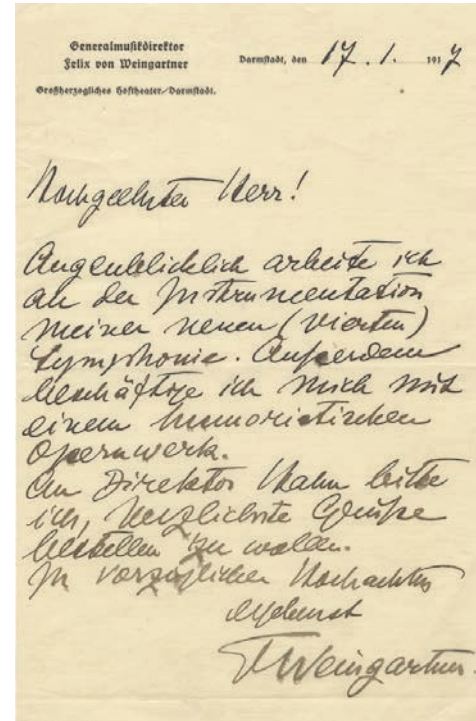 Generalmusikdirektor
Felix von Weingartner
Großherzogliches Hoftheater/Darmstadt.
Darmstadt, den 17.1. 1917
Hochgeehrter Herr!
Augenblicklich arbeite ich
an der Instrumentation
meiner neuen (vierten)
Symphonie. Außerdem
beschäftige ich mich mit
einem humoristischen
Opernwerk.
An Direktor Hahn bitte
ich, herzlichste Grüße
bestellen zu wollen.
In vorzüglicher Hochachtung
ergebenst
FWeingartner.